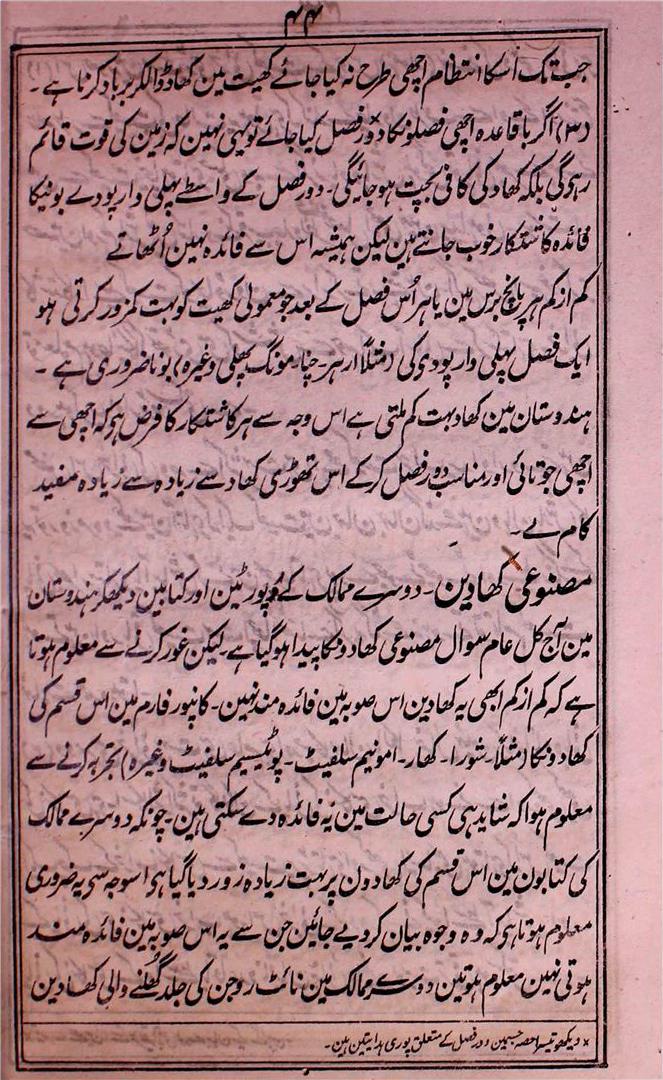 ۴۴
جب تک اُسکا انتظام اچھی طرح نہ کیا جائے کھیت مین کھاد ڈالکر برباد کرنا ہے ۔
(۳) اگر باقاعدہ اچھی فصلونکا دَور فصل× کیا جائے تو یہی نہین کہ زمین کی قوت قائم
رہوگی بلکہ کھاد کی کافی بچت ہو جائیگی ۔ دور فصل کے واسطے پھلی وار پودے بونیکا
فائدہ کاشتکار خوب جانتے ہین لیکن ہمیشہ اس سے فائدہ نہین اُٹھاتے
کم از کم ہر پانچ برس مین یا ہر اُس فصل کے بعد جو معمولی کھیت کو بہت کمزور کرتی ہو
ایک فصل پھلی وار پودی کی (مثلاً ارہر۔ چنا۔ مونگ پھلی وغیرہ) بونا ضروری ہے ۔
ہندوستان مین کھاد بہت کم ملتی ہے اس وجہ سے ہر کاشتکار کا فرض ہی کہ اچھی سے
اچھی جوتائی اور مناسب دَور فصل کرکے اس تھوڑی کھاد سے زیادہ سے زیادہ مفید
کام لے ۔
مصنوعی کھادین ۔ دوسرے ممالک کے رپورٹین اور کتابین دیکھکر ہندوستان
مین آج کل عام سوال مصنوعی کھادونکا پیدا ہو گیا ہے ۔ لیکن غور کرنے سے معلوم ہوتا
ہے کہ کم از کم ابھی یہ کھادین اس صوبہ مین فائدہ مند نہین ۔ کانپور فارم مین اس قسم کی
کھادونکا (مثلاً ۔ شورا ۔ کھار ۔ امونیم سلفیٹ ۔ پوٹیسیم سلفیٹ وغیرہ) تجربہ کرنے سے
معلوم ہوا کہ شاید ہی کسی حالت مین یہ فائدہ دے سکتی ہین ۔ چونکہ دوسرے ممالک
کی کتابون مین اس قسم کی کھادون پر بہت زیادہ زور دیا گیا ہی اسوجہ سی یہ ضروری
معلوم ہوتا ہی کہ وہ وجوہ بیان کر دیے جائین جن سے یہ اس صوبہ مین فائدہ مند
ہوتی نہین معلوم ہوتین دوسرے ممالک مین نائٹروجن کی جلد گھلنے والی کھادین
× دیکھو تیسرا حصہ جسمین دور فصل کے متعلق پوری ہدایتین ہین ۔